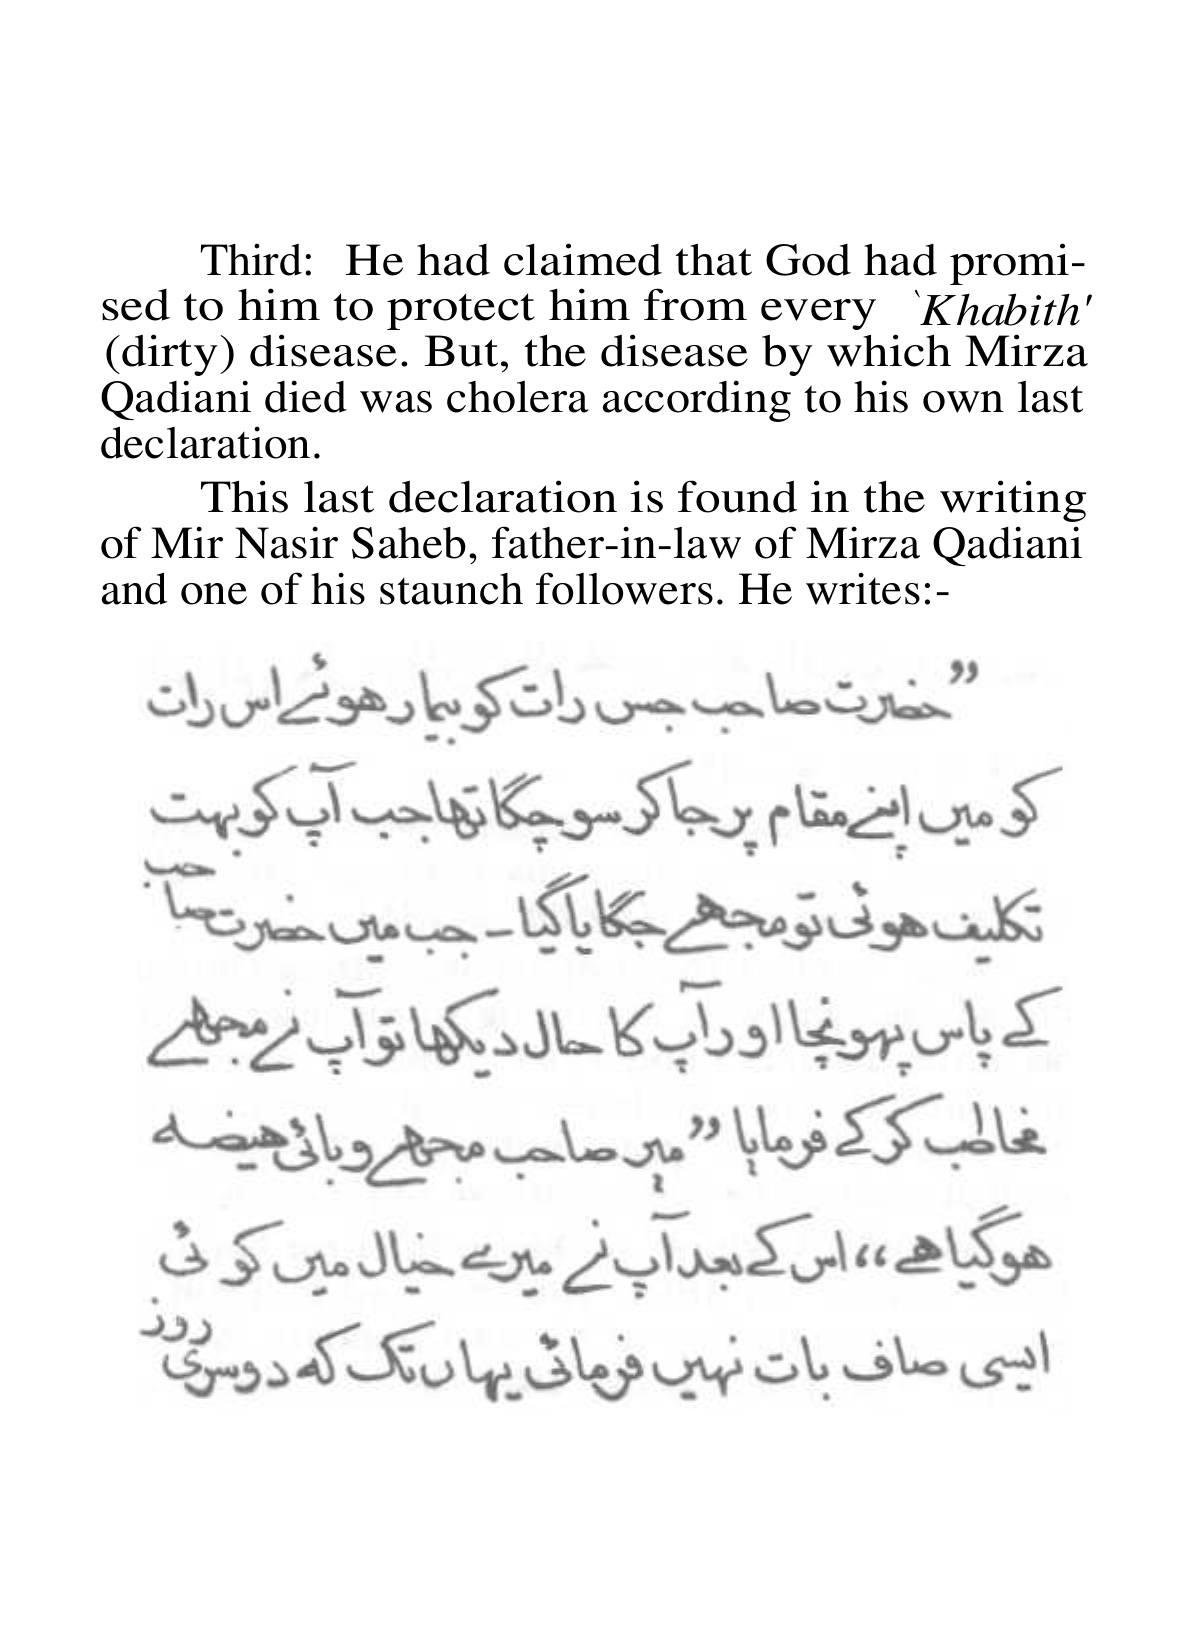 Third: He had claimed that God had promi-
sed to him to protect him from every `Khabith'
(dirty) disease. But, the disease by which Mirza
Qadiani died was cholera according to his own last
declaration.
This last declaration is found in the writing
of Mir Nasir Saheb, father-in-law of Mirza Qadiani
and one of his staunch followers. He writes:-
”حضرت صاحب جس رات کو بیمار ھوئے اس رات
کو میں اپنے مقام پر جا کر سو چکا تھا جب آپ کو بہت
تکلیف ھوئی تو مجھے جگایا گیا - جب میں حضرت صاحب
کے پاس پہونچا اور آپ کا حال دیکھا تو آپ نے مجھے
مخاطب کر کے فرمایا ”میر صاحب مجھے وبائی ھیضہ
ھو گیا ھے“ اس کے بعد آپ نے میرے خیال میں کوئی
ایسی صاف بات نہیں فرمائی یہاں تک کہ دوسری روز